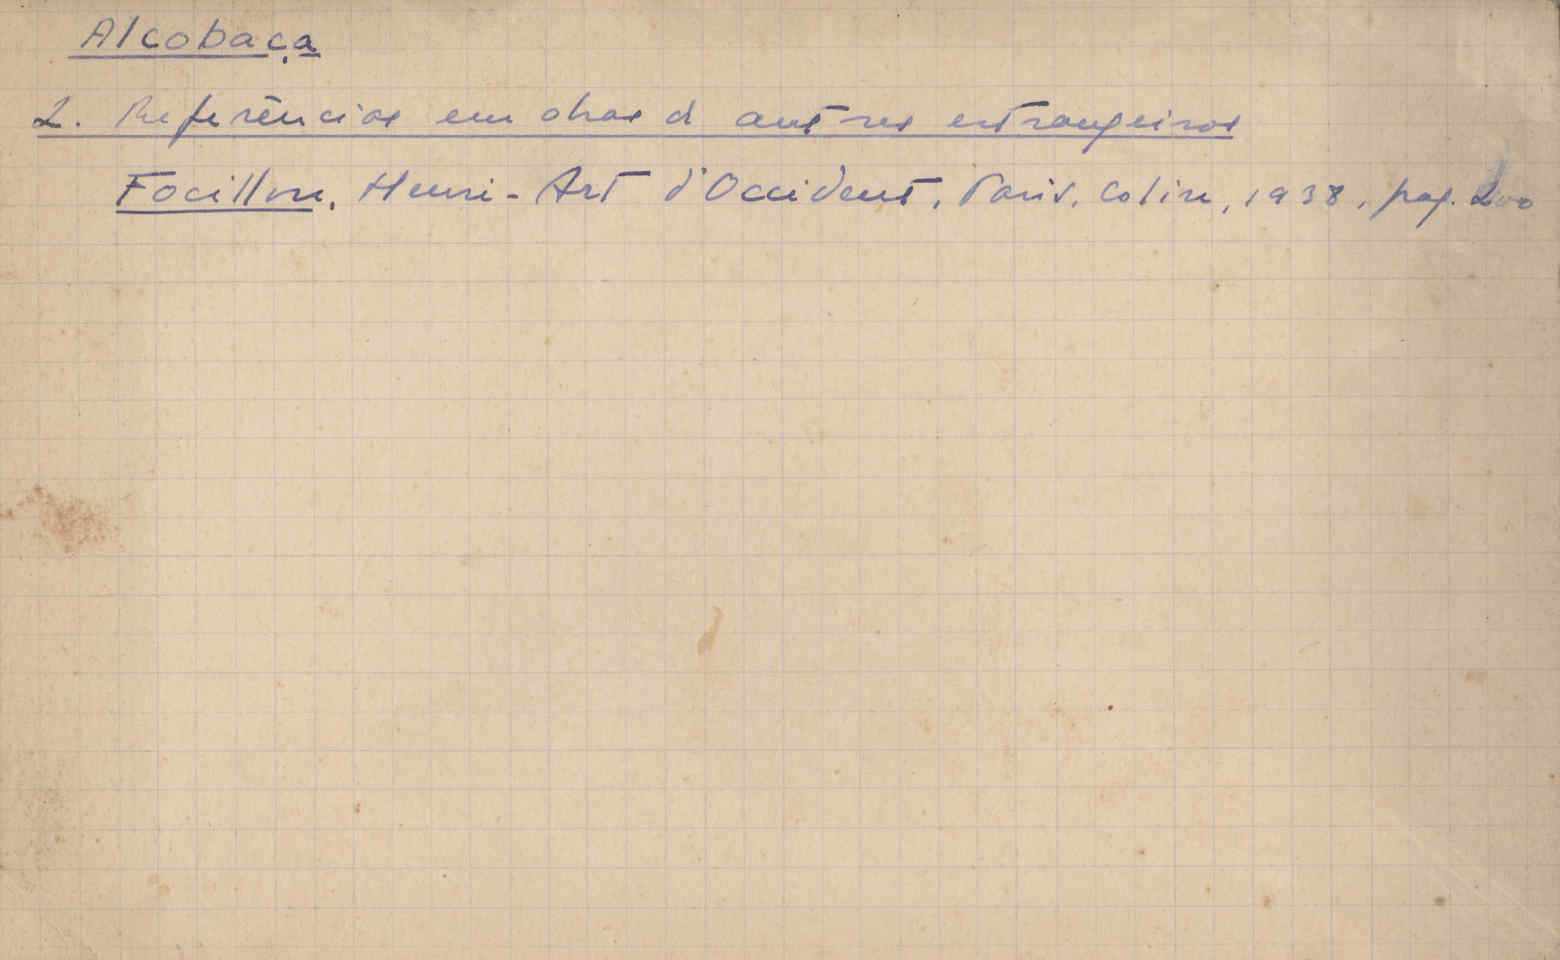 Alcobaça
2. Referências em obras d autores estrangeiros
Focillon, Henri - Art d'Occident, Paris, Colin, 1938, pag. 200